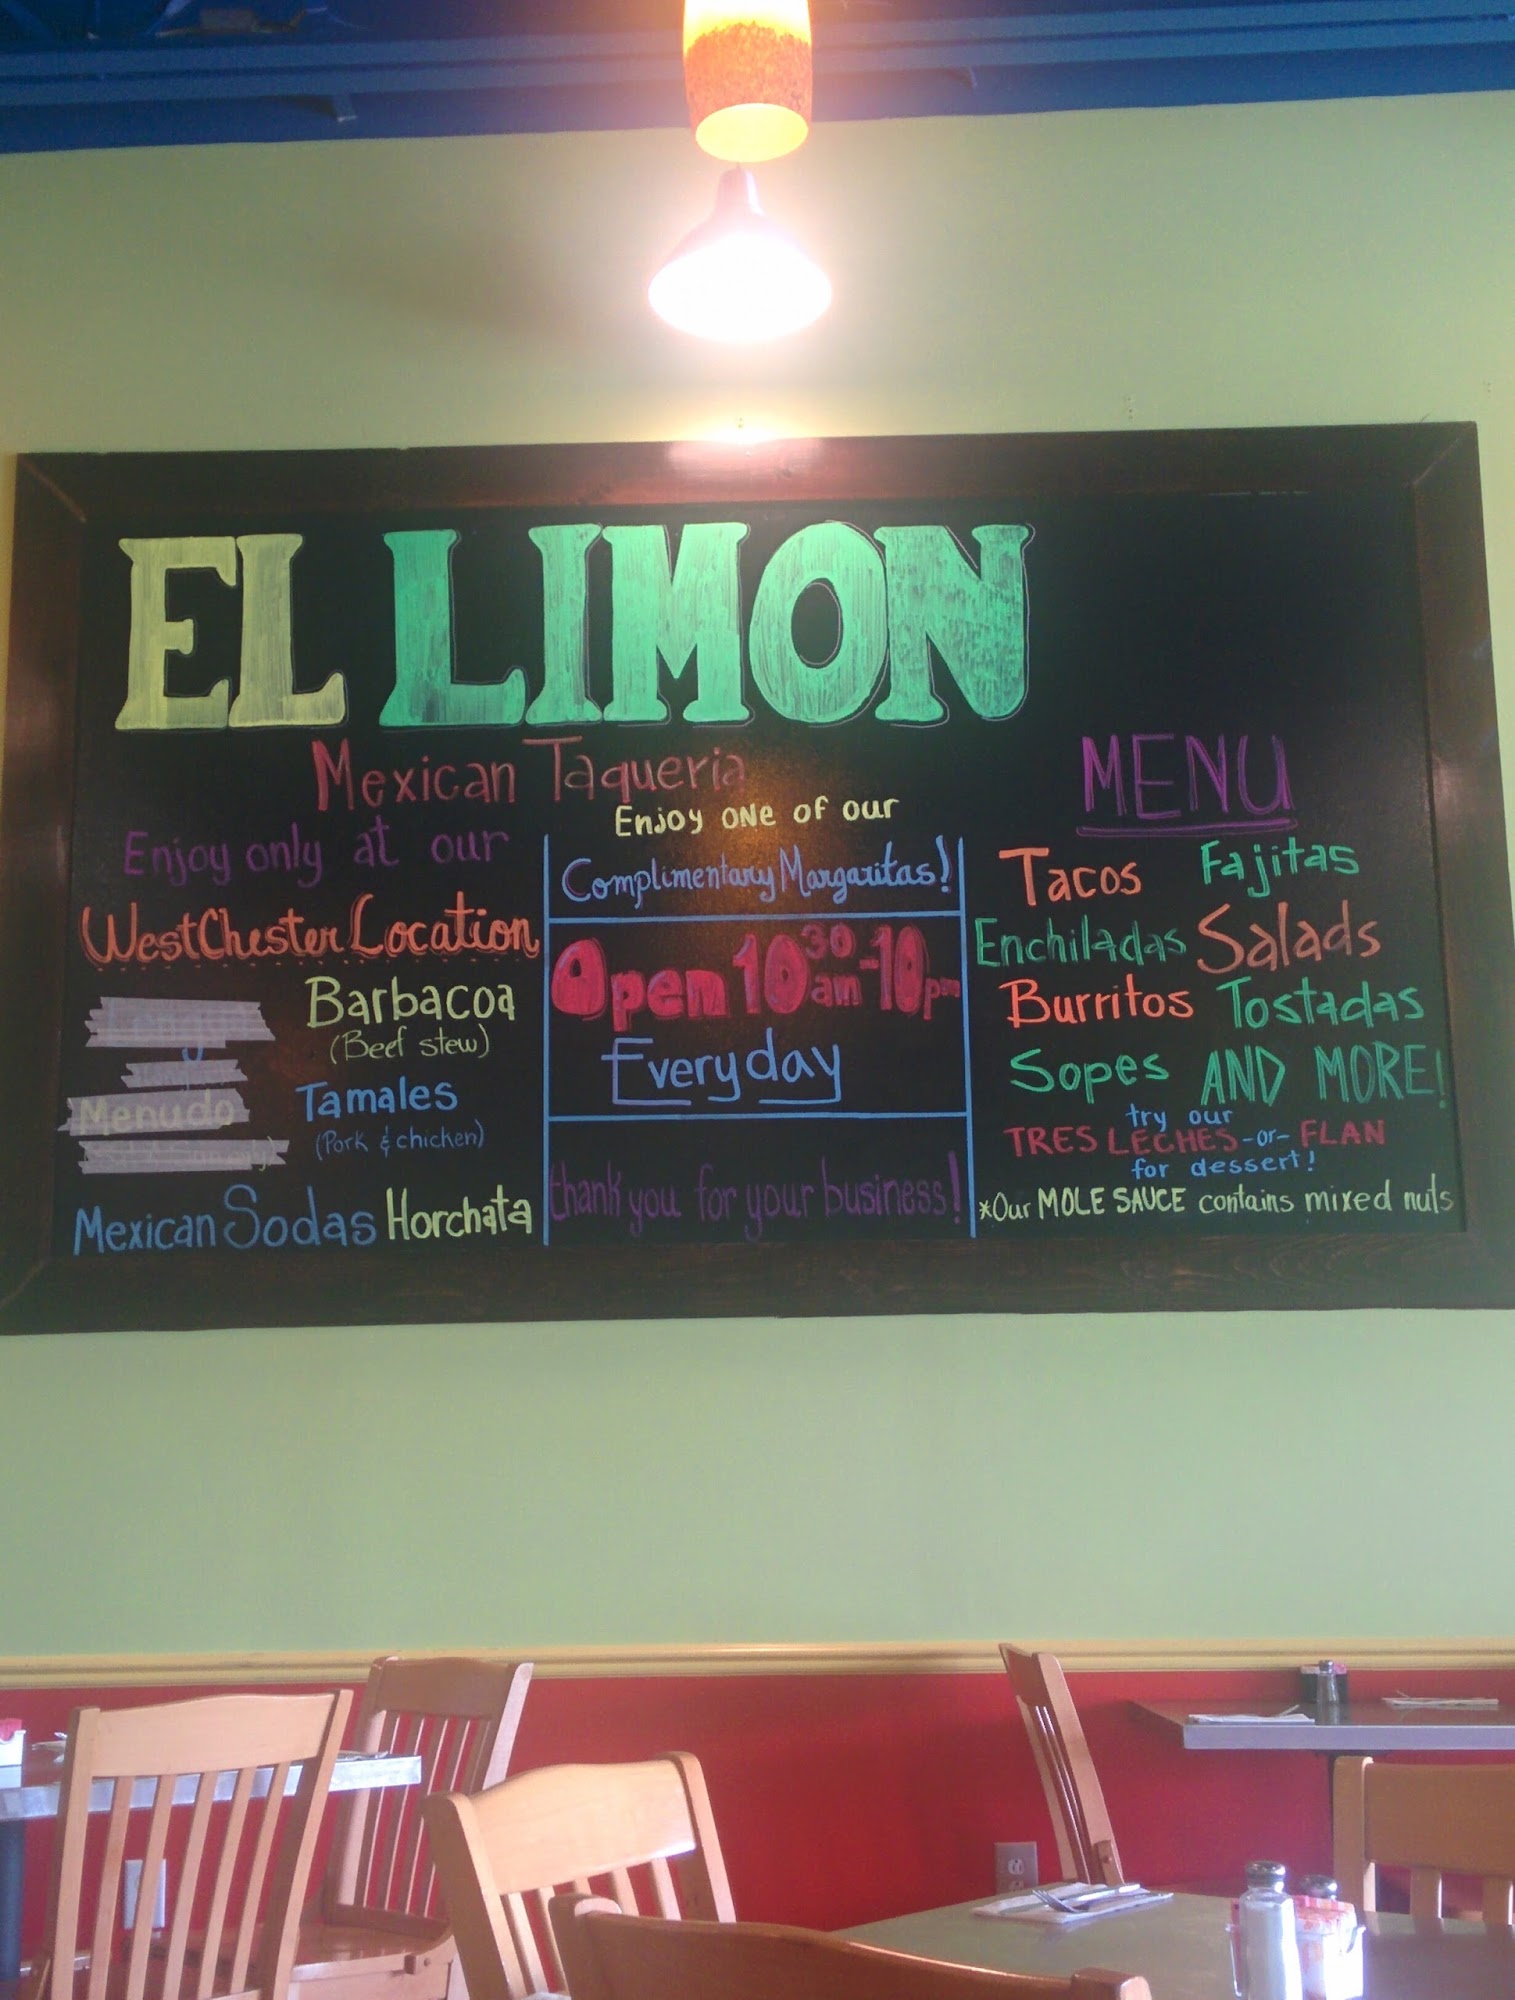 EL LIMON
Mexican Taqueria
Enjoy only at our
WestChester Location
Barbacoa
(Beef stew)
Menudo
Tamales
(Pork & chicken)
Mexican Sodas Horchata
Enjoy ONE of our
Complimentary Margaritas!
Open 10 30 am - 10 pm
Everyday
thank you for your business!
MENU
Tacos Fajitas
Enchiladas Salads
Burritos Tostadas
Sopes AND MORE!
try our
TRES LECHES -or- FLAN
for dessert!
*Our MOLE SAUCE contains mixed nuts